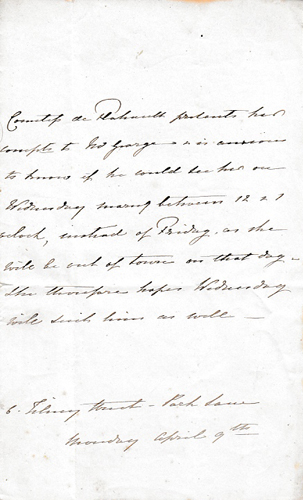 Countess de Flahault presents her
compts to Mr George & is anxious
to know if he could see her on
Wednesday morng between 12 & 1
o'clock, instead of Friday, as she
will be out of town on that day -
She therefore hopes Wednesday
will suit him as well -
6. Tilney Street - Park Lane
Monday April 9th